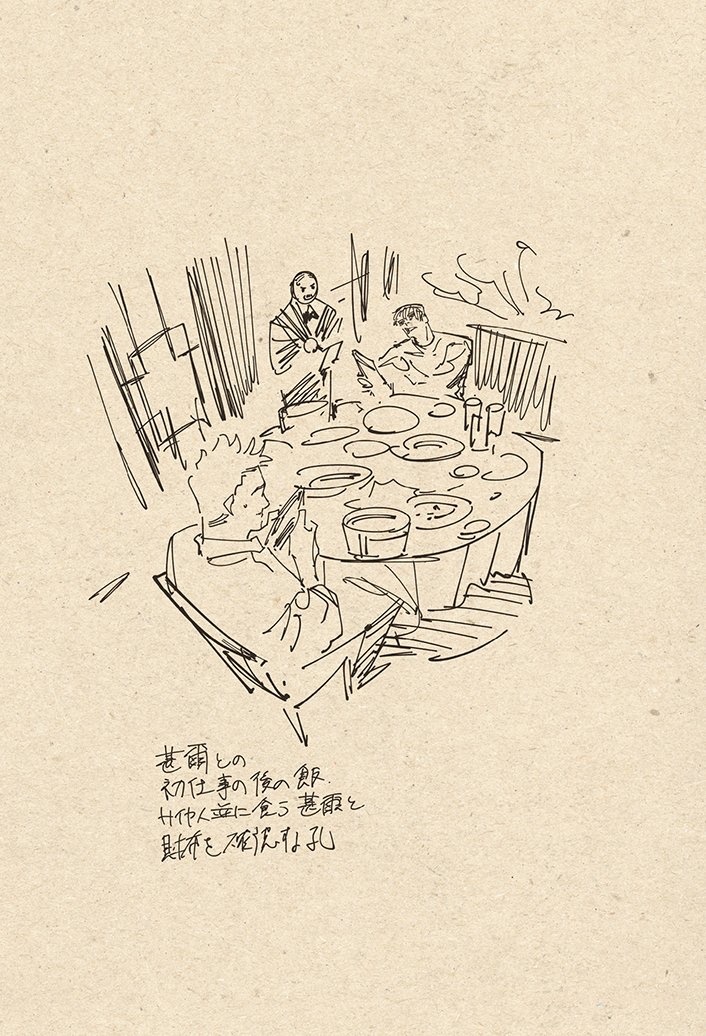 甚爾との
初仕事の後の飯.
サイヤ人並に食う甚爾と
財布を確認する孔